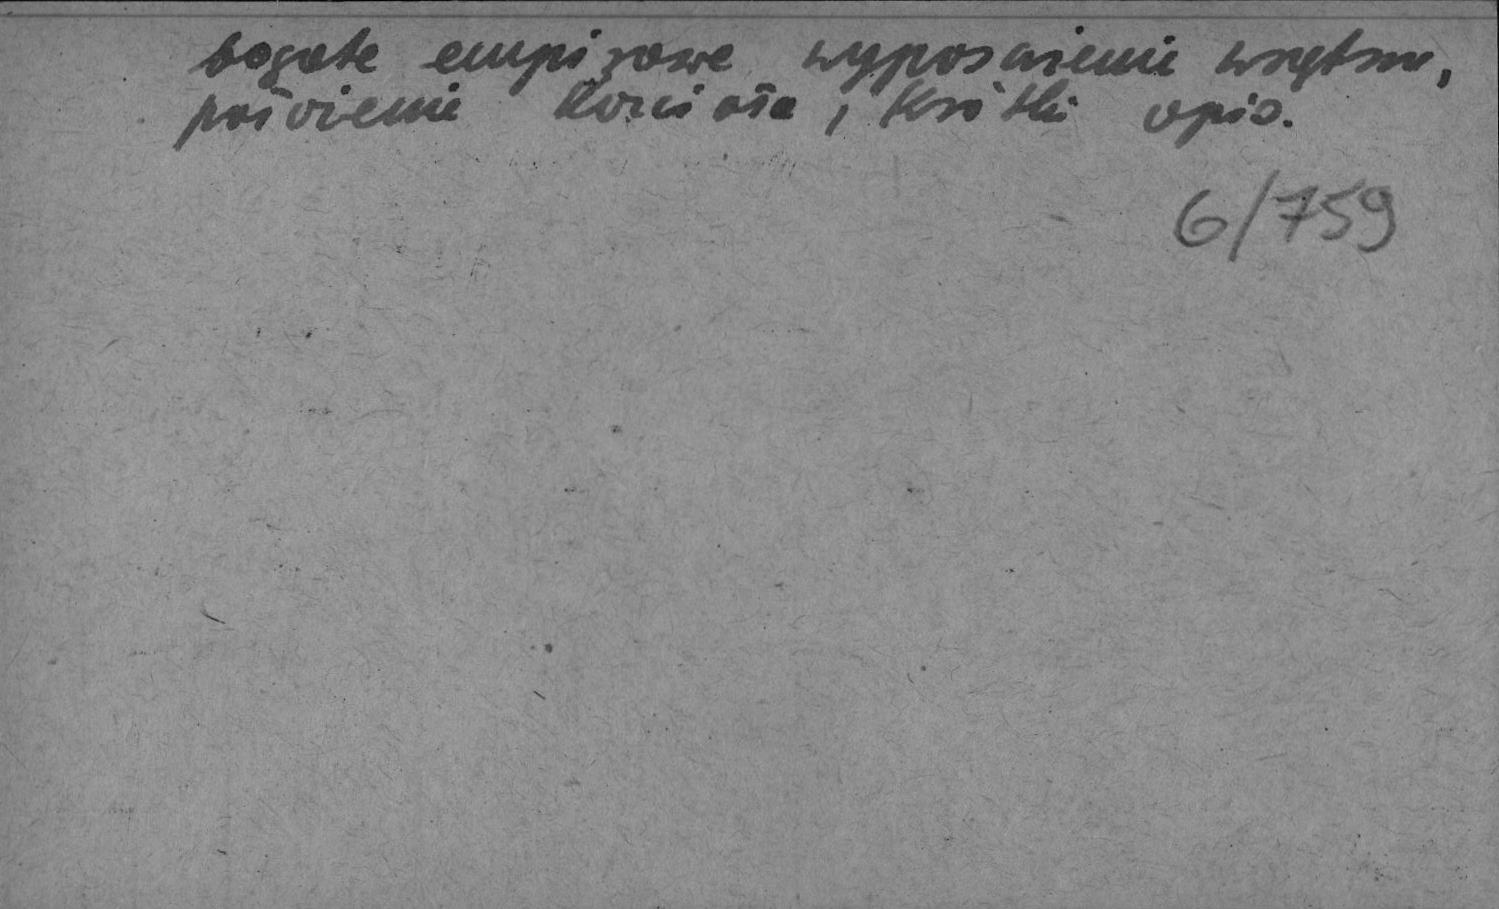 bogate empirowe wyposażenie wnętrza,
położenie kościoła, krótki opis.
6/759